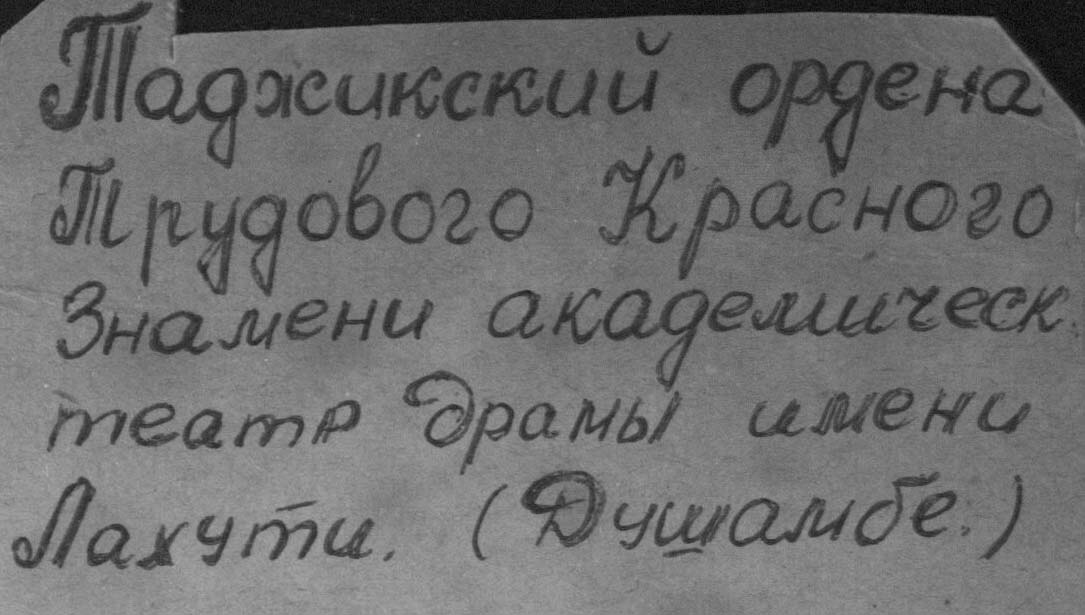 Таджикский ордена
Трудового Красного
Знамени академическ.
театр драмы имени
Лахути. (Душамбе.)